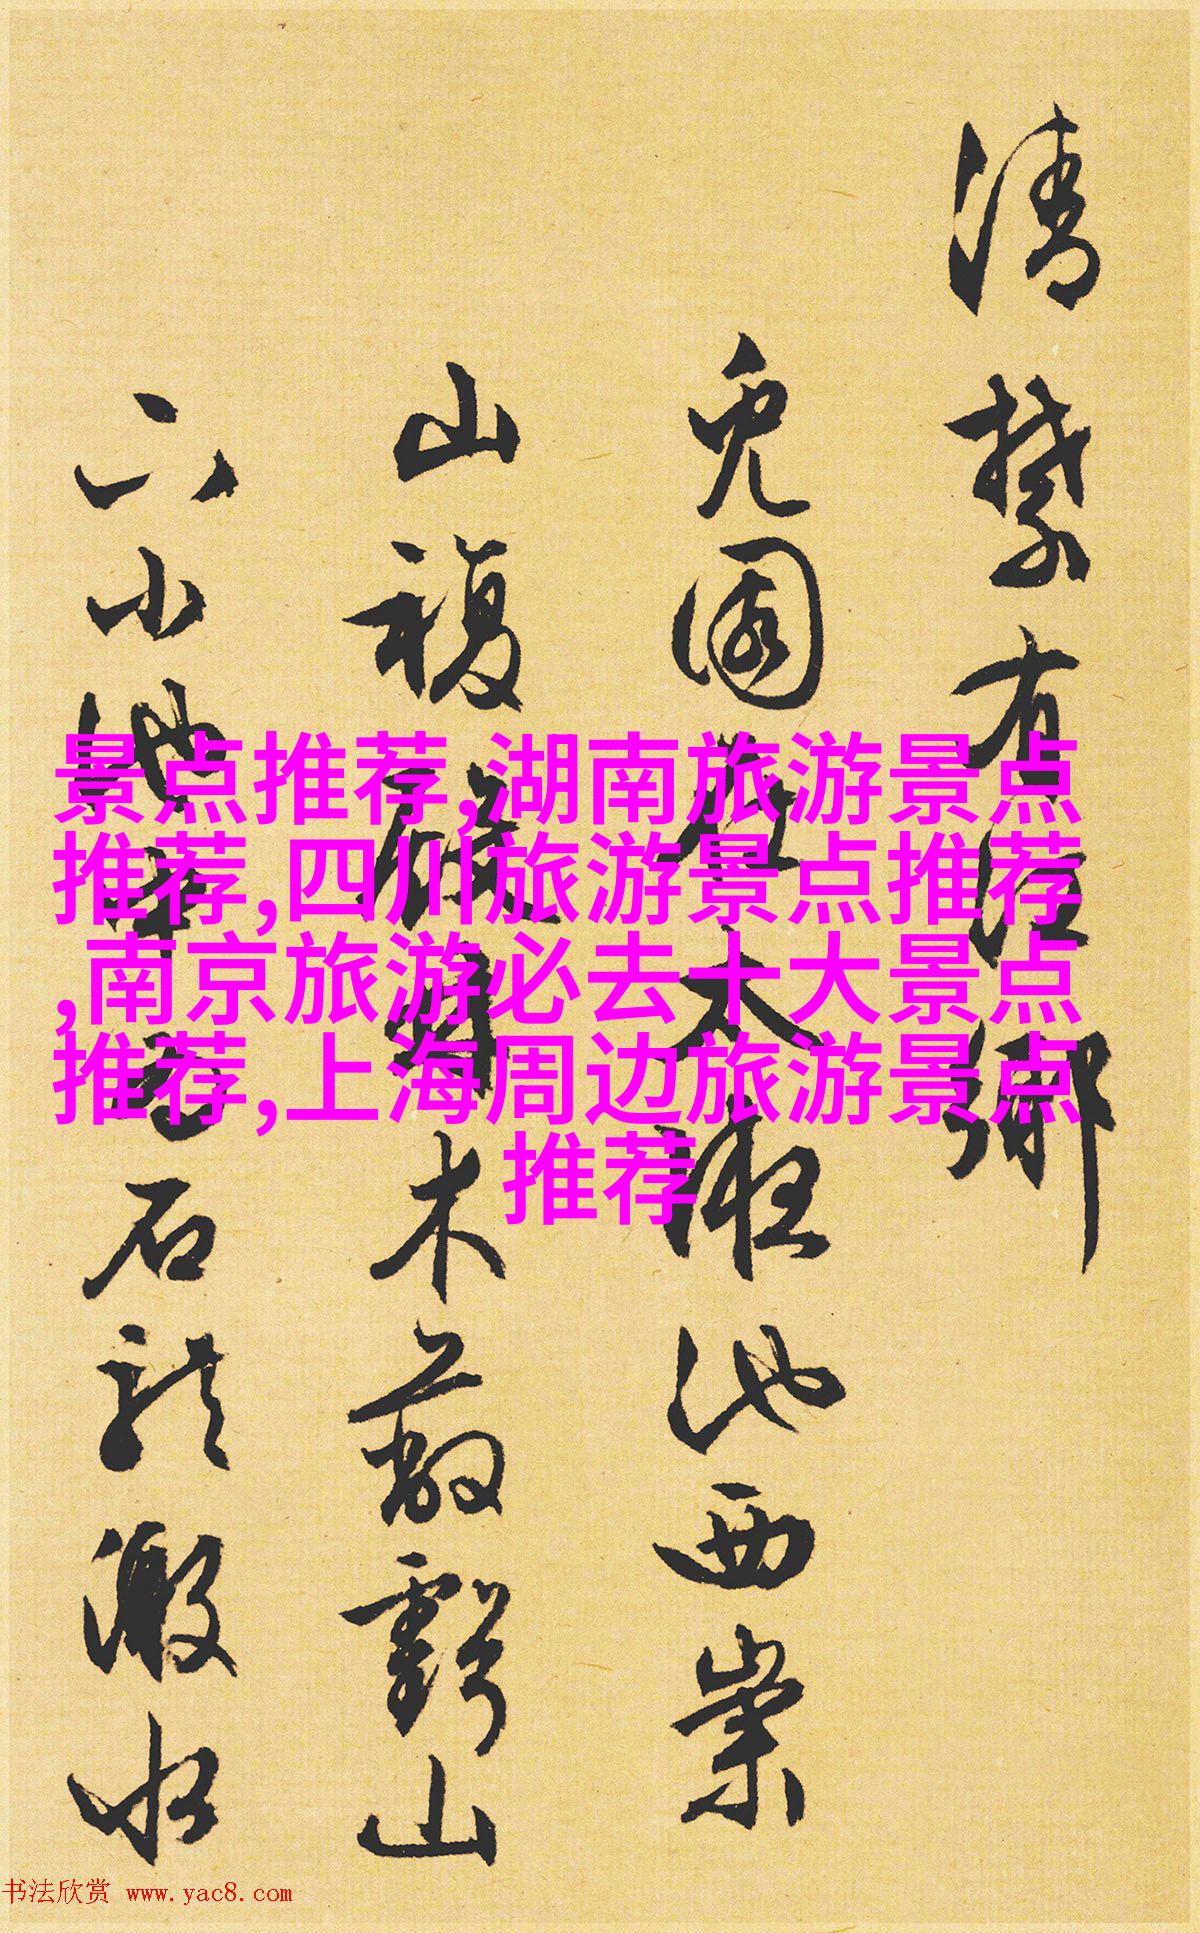 清有
兔園在太液池西崇
山複木蔽虧山
下小池石龍激水
景点推荐,湖南旅游景点
推荐,四川旅游景点推荐
,南京旅游必去十大景点
推荐,上海周边旅游景点
推荐
书法欣赏 www.yac8.com